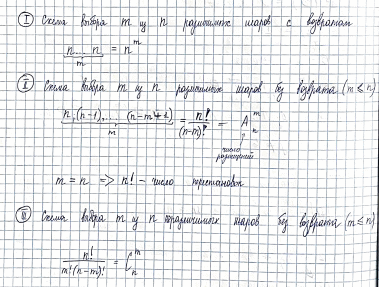 I Схема выбора m из n различимых шаров с возвратом
n ... n = n^m
m
II Схема выбора m из n различимых шаров без возврата (m ≤ n)
n·(n-1)·...·(n-m+1) = n!/(n-m)! = A_n^m
m
число
размещений
m = n => n! - число перестановок
III Схема выбора m из n неразличимых шаров без возврата (m ≤ n)
n!/(m!(n-m)!) = C_n^m